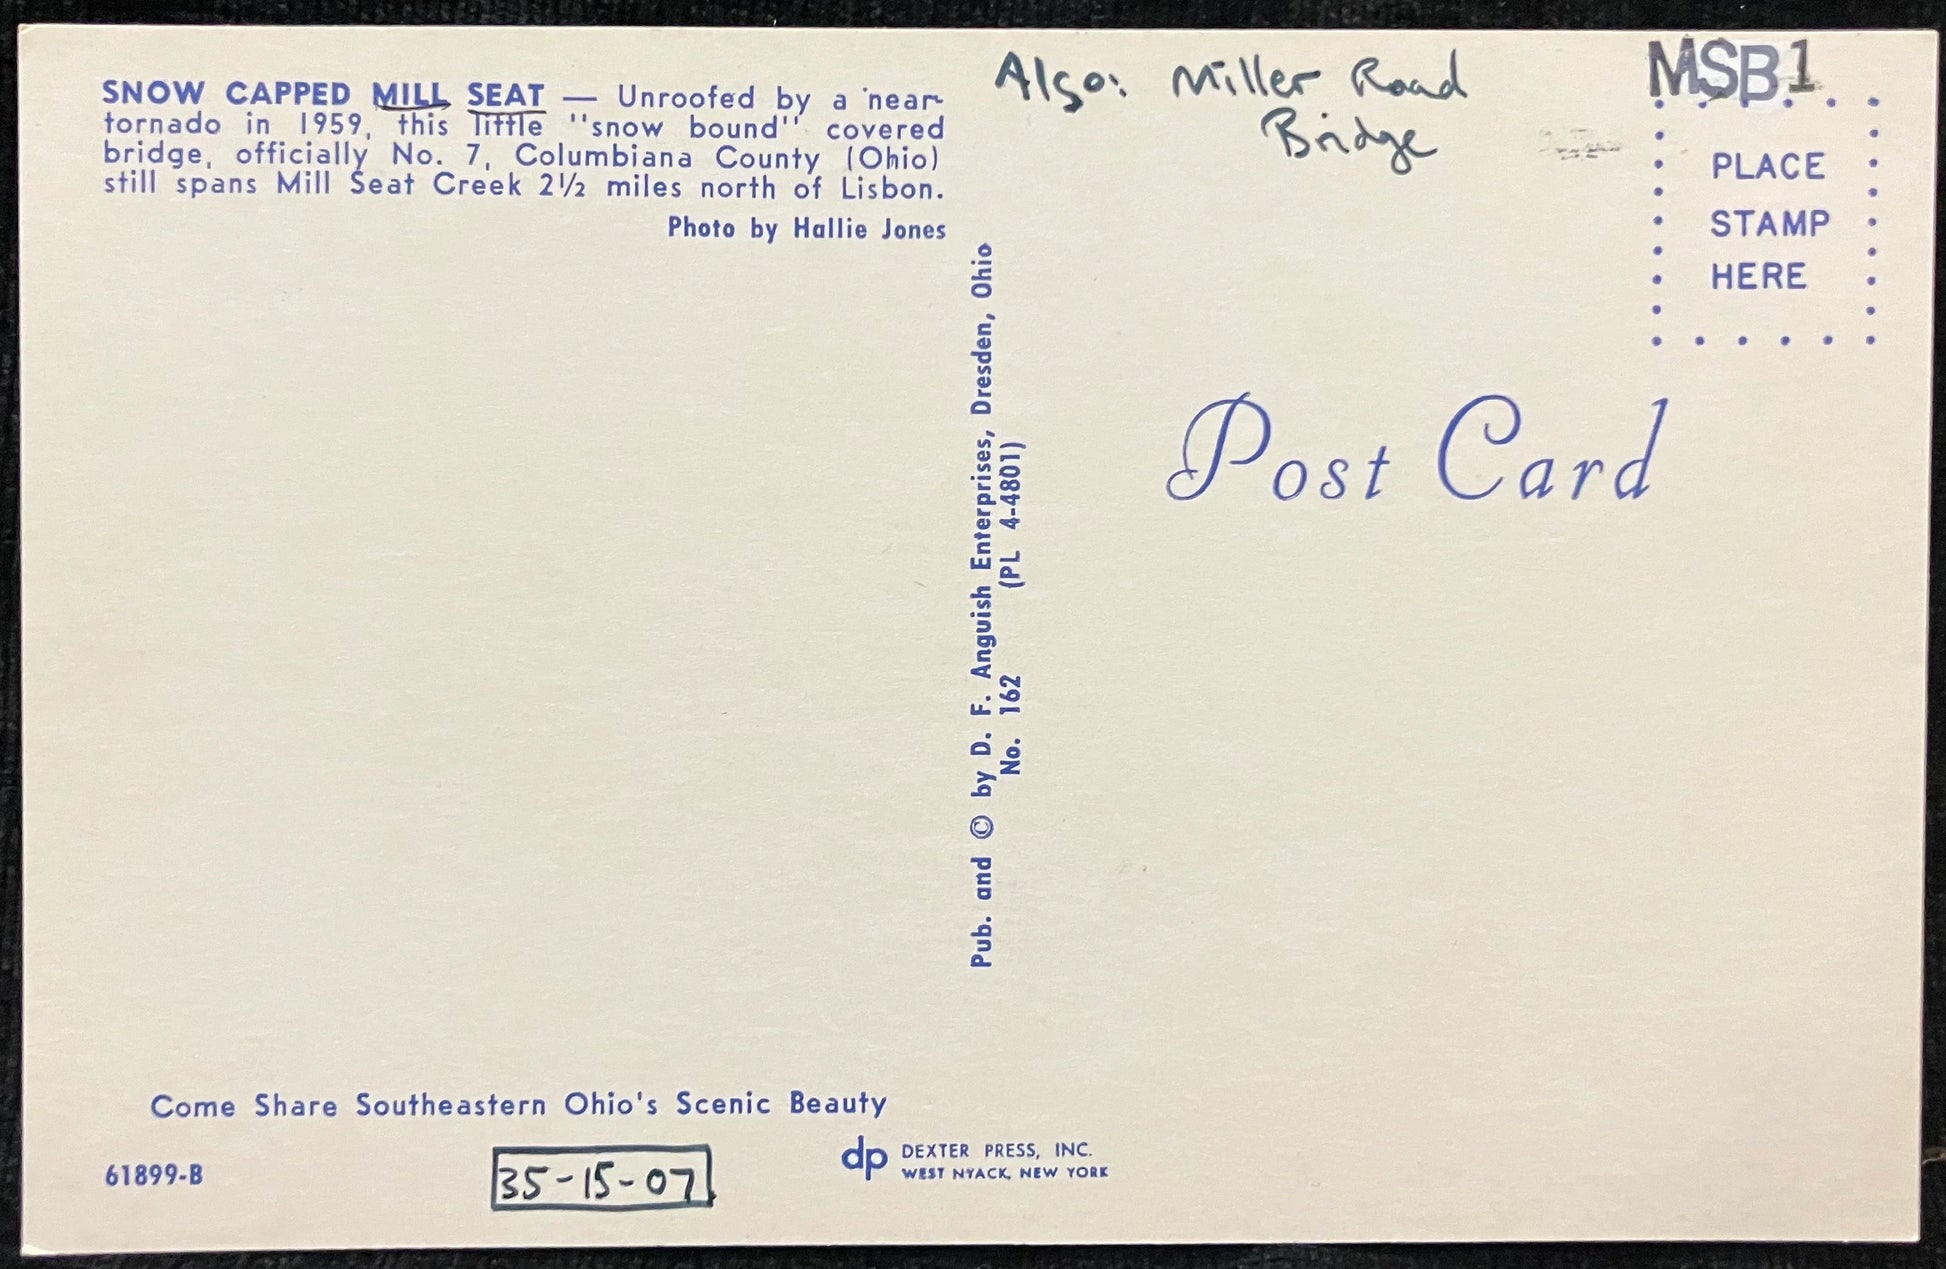 SNOW CAPPED MILL SEAT — Unroofed by a near-
tornado in 1959, this little "snow bound" covered
bridge, officially No. 7, Columbiana County (Ohio)
still spans Mill Seat Creek 2½ miles north of Lisbon.
Photo by Hallie Jones
Also: Miller Road
Bridge
MSB1
PLACE
STAMP
HERE
Post Card
Pub. and © by D. F. Anguish Enterprises, Dresden, Ohio
No. 162 (PL 4-4801)
Come Share Southeastern Ohio's Scenic Beauty
61899-B
35-15-07
dp DEXTER PRESS, INC.
WEST NYACK, NEW YORK